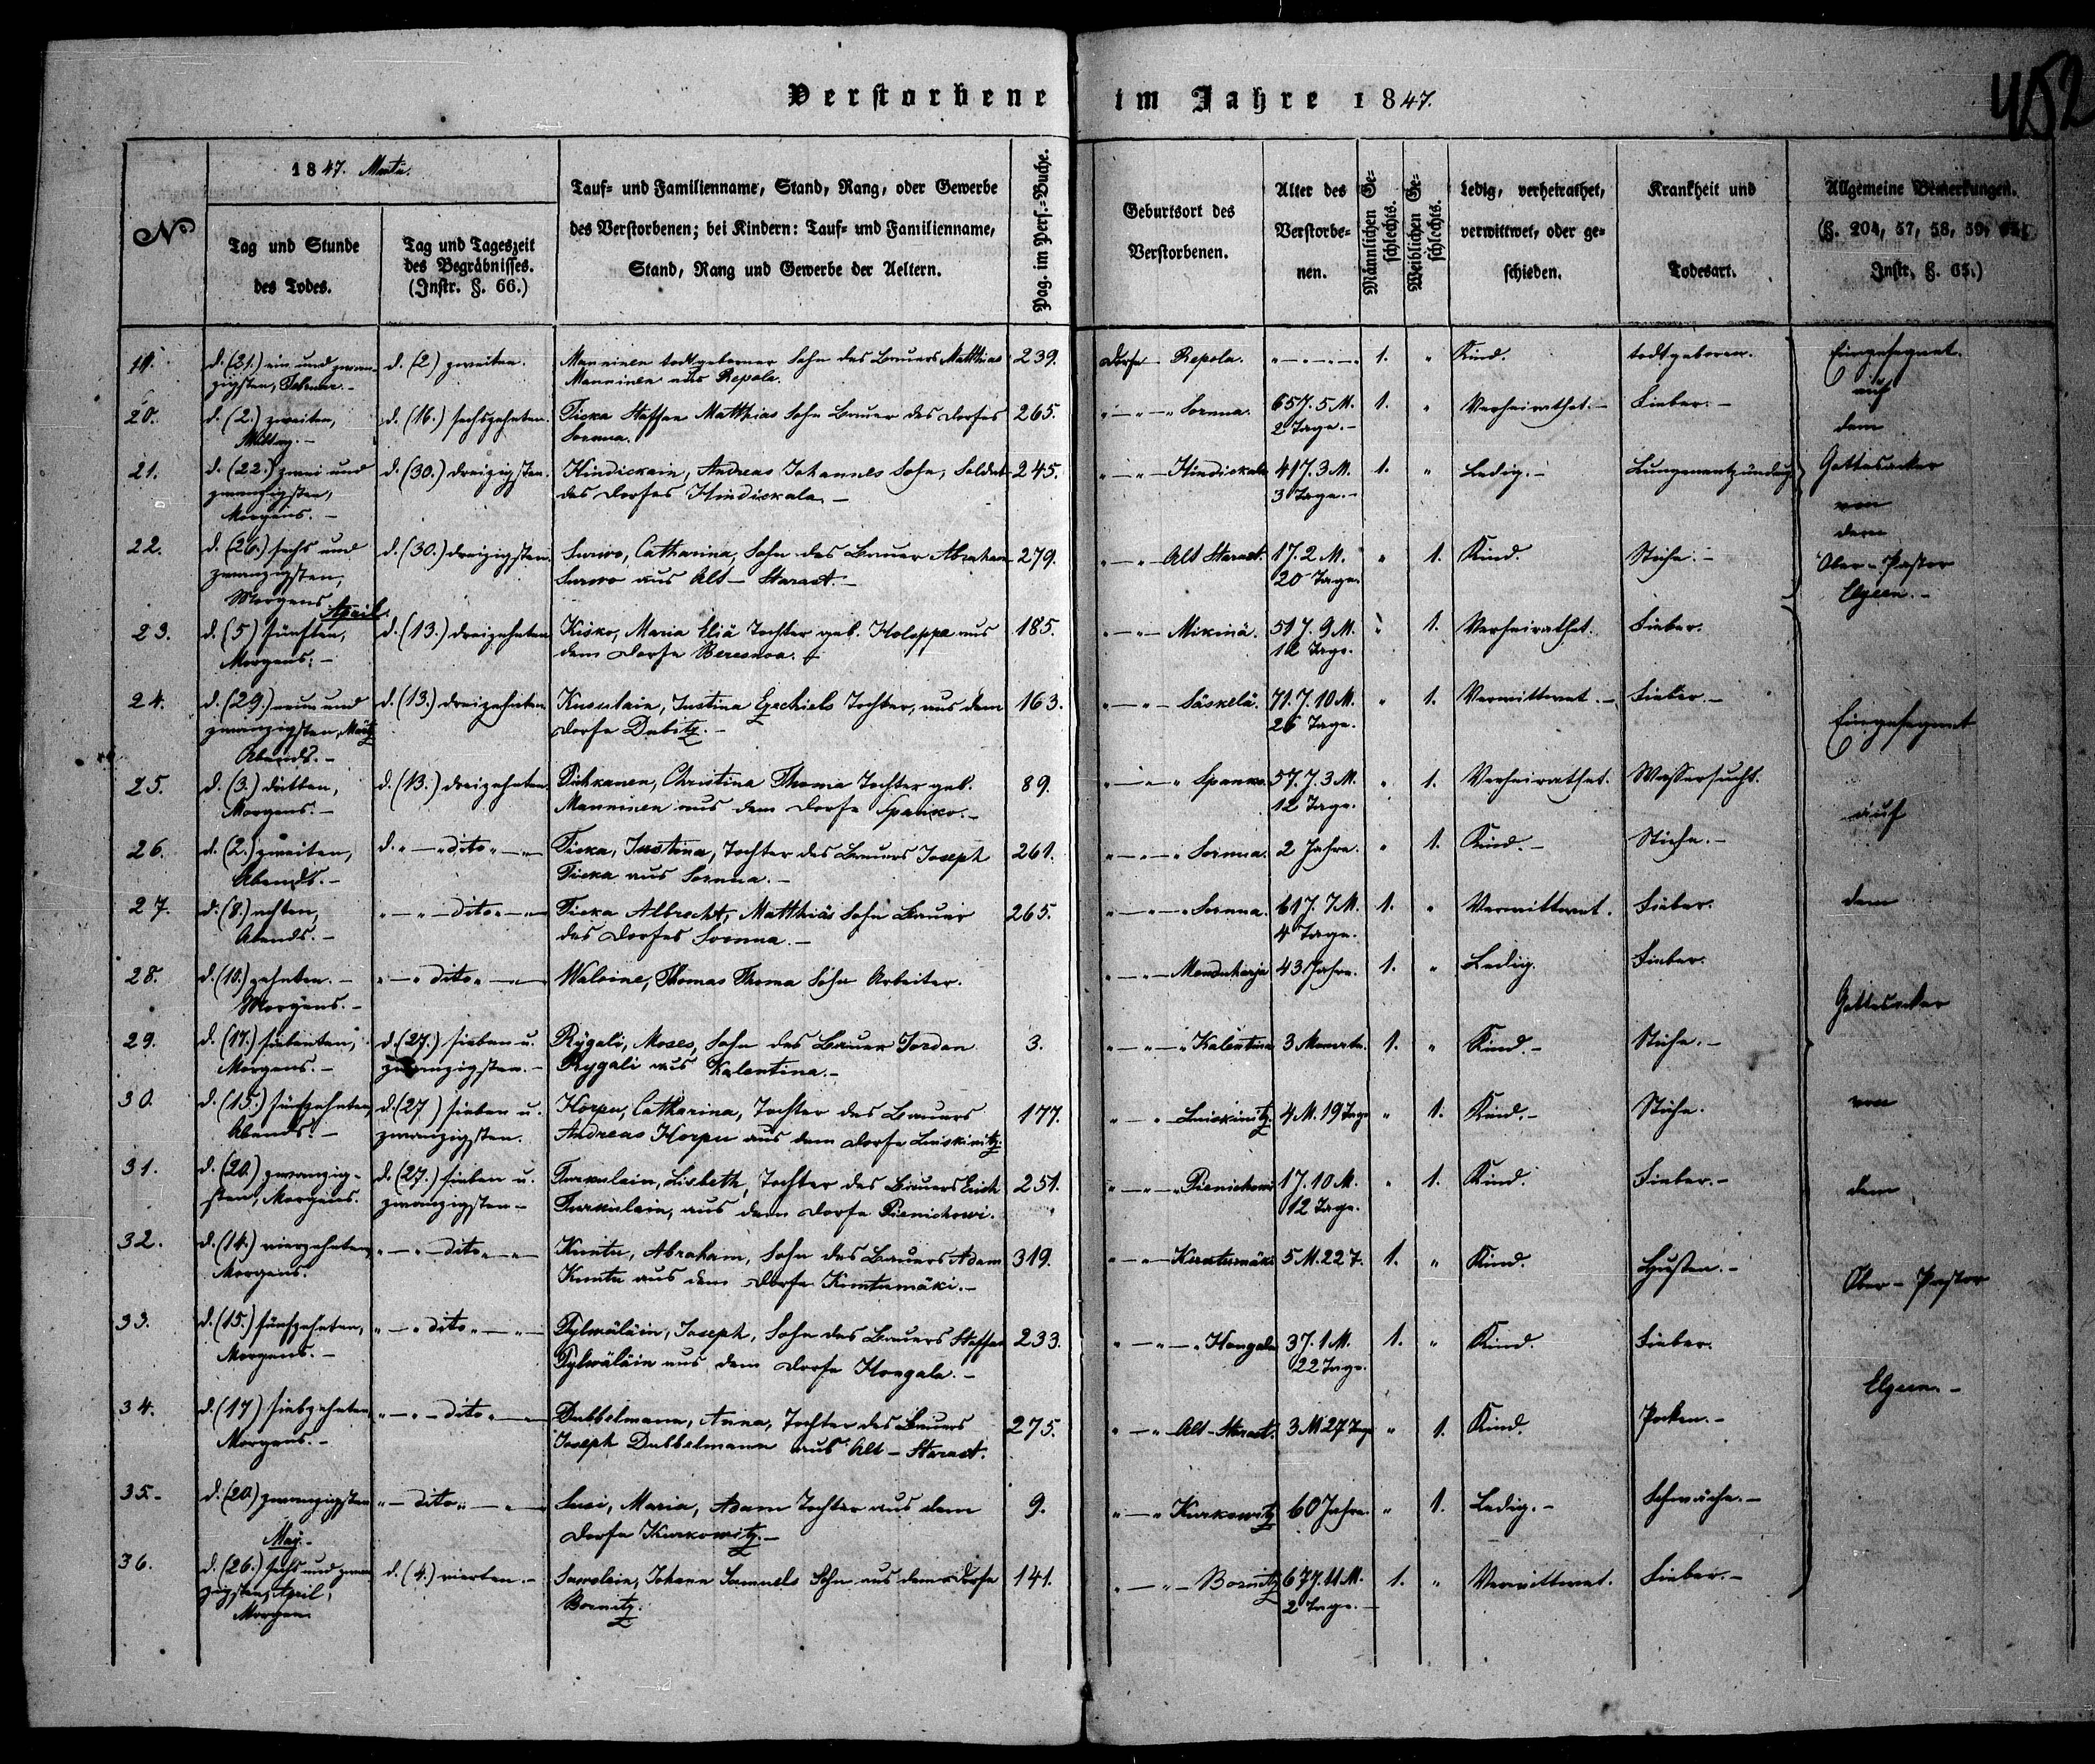 Verstorbene im Jahre 1847.
452
1847. Martii.
No
Tag und Stunde
des Todes.
Tag und Tageszeit
des Begräbnisses.
(Instr. §. 66.)
Tauf- und Familienname, Stand, Rang, oder Gewerbe
des Verstorbenen; bei Kindern: Tauf- und Familienname,
Stand, Rang und Gewerbe der Aeltern.
Pag. im Pers.-Buche.
Geburtsort des
Verstorbenen.
Alter des
Verstorbe-
nen.
Männlichen Ge-
schlechts.
Weiblichen Ge-
schlechts.
Ledig, verheirathet,
verwittwet, oder ge-
schieden.
Krankheit und
Todesart.
Allgemeine Bemerkungen.
(§. 204, 57, 58, 59,
Instr. §. 65.)
d. (21.) ein und zwan- d. (2) zweiten. Manninen todtgeborner Sohn des Bauers Matthias 239. Dorfe Repola. 1. " Kind. todtgeboren. Eingesegnet
zigsten, Februar.- Manninen aus Repola.
auf
20. d. (2.) zweiten, d. (16.) sechszehnten. Ticka Staffan Matthias Sohn Bauer des Dorfes 265. " — " 65 J. 5 M. 1. " Verheirathet.- Fieber.-
Mittag.- 2 Tage.-
dem
21. d. (22.) zwei und d. (30.) dreizigsten. Hindickain, Andreas Johannes Sohn, Soldat 245. " — " — Hindickala 41 J. 3 M. 1. " Ledig.- Lungenentzündung Gottesacker
zwanzigsten, des Dorfes Hindickala.- 3 Tage.-
Morgens.- von
dem
22. d. (26.) sechs und d. (30.) dreizigsten. Surwo, Catharina, Sohn des Bauer Abraham 279. " — " — Alt Starast. 1 J. 2 M. " 1. Kind. Ober-Pastor
zwanzigsten, Surwo aus Alt-Starast.- 20 Tage.
Morgens Elgeen.-
April.
23. d. (5) fünften, d. (13.) dreizehnten Kisko, Maria Eliä Tochter geb. Holoppa aus 185. " — " — Mikinä. 51 J. 9 M. " 1. Verheirathet. Fieber.
Morgens.- dem Dorfe Beresnoa. 12 Tage.
24. d. (29.) neun und d. (13.) dreizehnten Kusulain, Justina Ezechiels Tochter, aus dem 163. " — " — Säskelä. 71. J. 10 M. " 1. Verwittwet.- Fieber.-
zwanzigsten, März Dorfe Dubitz.- 26 Tage. Eingesegnet
Abends.-
25. d. (3.) dritten, d. (13.) dreizehnten. Pukkanen, Christina Thoma Tochter geb. 89. " — " Spanko. 57. J. 3 M. " 1. Verheirathet. Wassersucht.
Morgens.- Manninen aus dem Dorfe Spanko.- 12 Tage.
auf
26. d. (2.) zweiten, d. " — dito " — " Ticka, Justina, Tochter des Bauers Joseph 261. " — " 2 Jahre. " 1. Kind.-
Abends.- Ticka aus
27. d. (8.) achten, " — " — dito " — " Ticka Albrecht, Matthias Sohn Bauer 265. " — " 61 J. 7 M. 1. " Verwittwet. Fieber. dem
Abends.- des Dorfes 4 Tage.
28. d. (10.) zehnten.- " — " dito " — " Waloine, Thomas Thoma Sohn Arbeiter. " — " — Mondukarja 43 Jahre. 1. " Ledig. Fieber.
Morgens.- Gottesacker
29. d. (17.) siebenten, d. (27.) sieben u. Rygali, Moses, Sohn des Bauer Jordan 3. " — " Kalentina 3 Monate. 1. " Kind.-
Morgens.- zwanzigsten.- Rygali aus Kalentina.-
30. d. (15.) fünfzehnten, d. (27) sieben u. Horpu, Catharina, Tochter des Bauers 177. " — " 4 M. 19 Tage " 1. Kind.- von
Abends.- zwanzigsten. Andreas Horpu aus dem Dorfe
31. d. (20.) zwanzig- d. (27.) sieben u. Turkulain, Lisbeth, Tochter des Bauers Erich 251. " — " Pienichowi 1 J. 10 M. " 1. Kind. Fieber.- dem
sten, Morgens. zwanzigsten- Turkulain, aus dem Dorfe Pienichowi. 12 Tage.
32. d. (14.) vierzehnten, " — " dito " — " Kuntu, Abraham, Sohn des Bauers Adam 319. " — " Kuntumäki 5 M. 22 T. 1. " Kind. Husten.- Ober-Pastor
Morgens. Kuntu aus dem Dorfe Kuntumäki.-
33. d. (15.) fünfzehnten, " — " dito " — " Pylwäläin, Joseph, Sohn des Bauers Staffan 233. " — " Hongala 3 J. 1 M. 1. " Kind. Fieber.
Morgens.- Pylwäläin aus dem Dorfe Hongala.- 22 Tage.
Elgeen.-
34. d. (17) siebzehnten, " — " dito " — " Dubbelmann, Anna, Tochter des Bauers 275. " — " Alt-Starast. 3 M 27 Tage " 1. Kind. Pocken.-
Morgens.- Joseph Dubbelmann aus Alt-Starast.
35.- d. (20.) zwanzigsten " — dito " — " Susi, Maria, Adam Tochter aus dem 9. " — " Kurkowitz 60 Jahre. " 1. Ledig.- Schwäche.-
Dorfe Kurkowitz.-
May.-
36. d. (26.) sechs und zwan- d. (4.) vierten.- Johann Samuels Sohn aus dem Dorfe 141. " — " — Bornitz 67 J. 11 M. 1. " Verwittwet. Fieber.-
zigsten, April, Bornitz. 2 Tage.-
Morgen